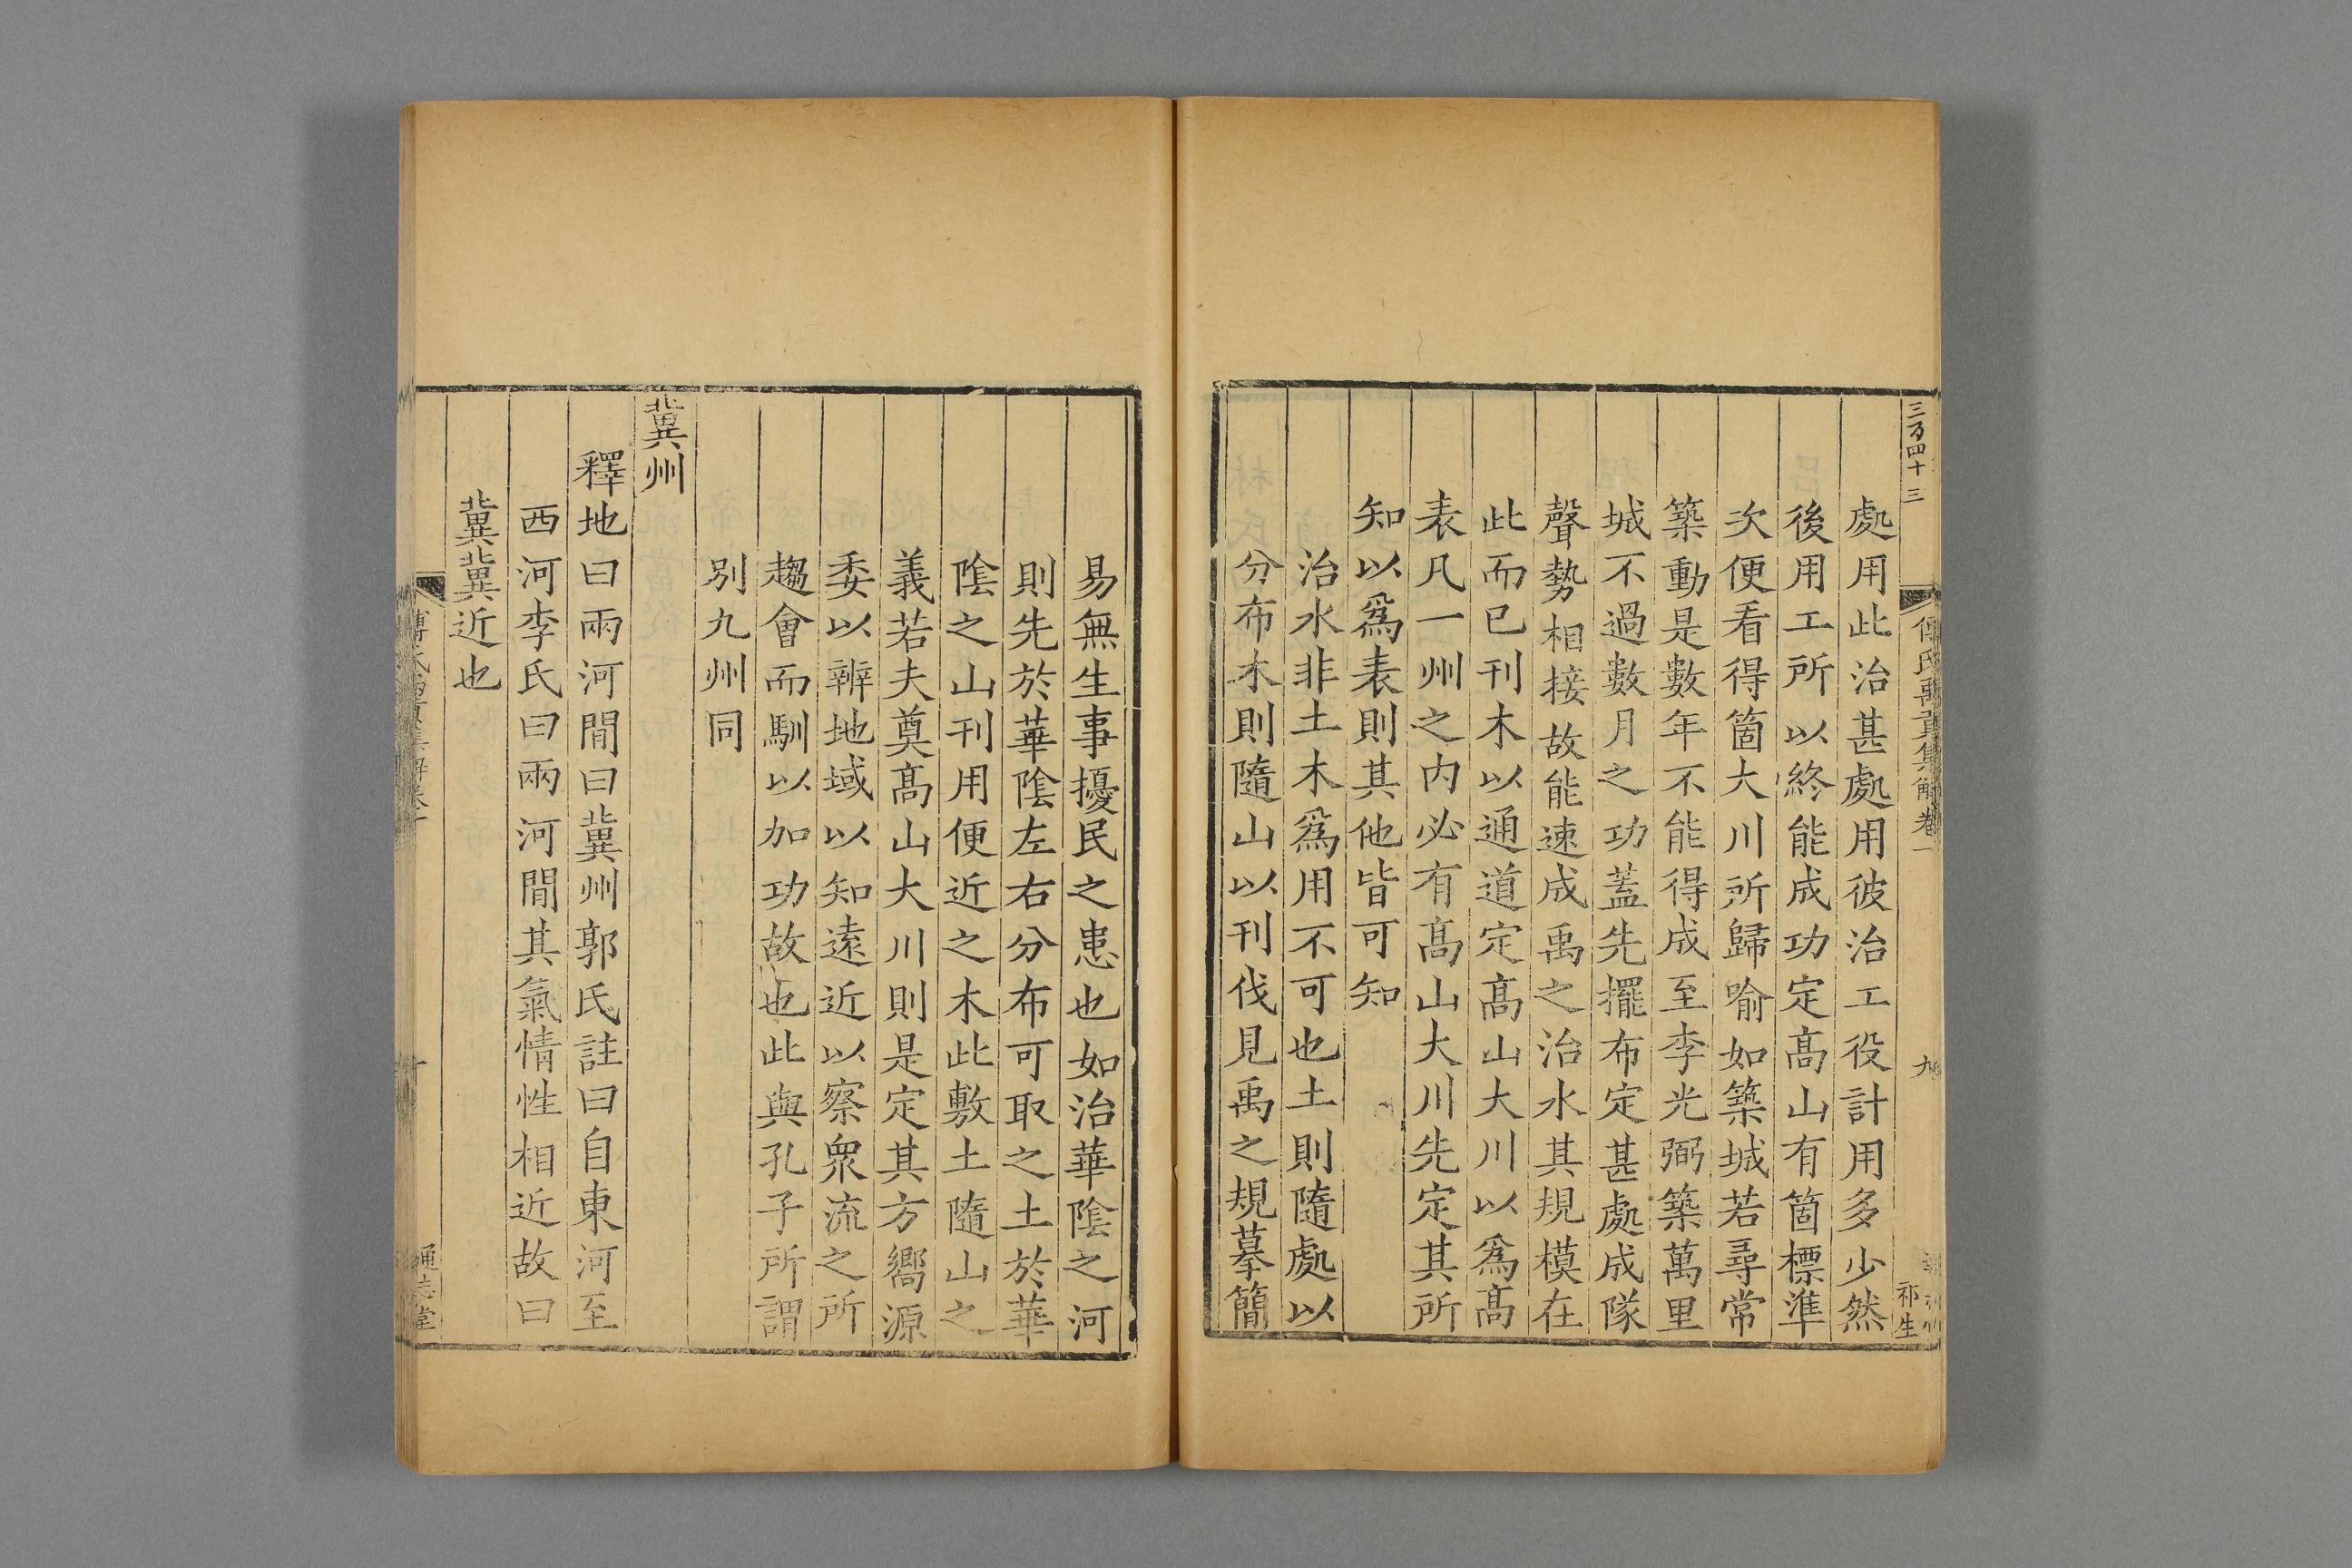 三万四十三
傅氏禹貢集解卷一
九
祁生
處用此治甚處用彼治工役計用多少然
後用工所以終能成功定髙山有箇標準
次便看得箇大川所歸喻如築城若尋常
築動是數年不能得成至李光弼築萬里
城不過數月之功蓋先擺布定甚處成隊
聲勢相接故能速成禹之治水其規模在
此而已刊木以通道定髙山大川以爲髙
表凡一州之内必有髙山大川先定其所
知以爲表則其他皆可知
治水非土木爲用不可也土則隨處以
分布木則隨山以刊伐見禹之規摹簡
易無生事擾民之患也如治華隂之河
則先於華隂左右分布可取之土於華
隂之山刊用便近之木此敷土隨山之
義若夫奠髙山大川則是定其方嚮源
委以辨地域以知逺近以察衆流之所
趨會而馴以加功故也此與孔子所謂
別九州同
冀州
釋地曰兩河間曰冀州郭氏註曰自東河至
西河李氏曰兩河間其氣情性相近故曰
冀冀近也
十
通志堂